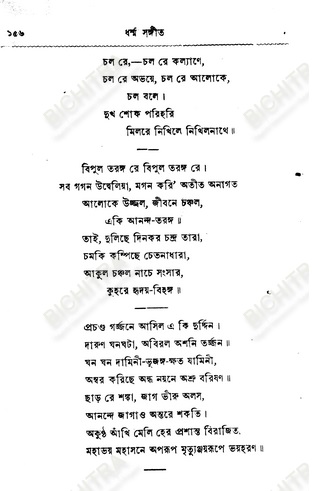 ১৫৬ ধর্ম্ম সঙ্গীত
চল রে,—চল রে কল্যাণে,
চল রে অভয়ে, চল রে আলোকে,
চল বলে।
দুখ শোক পরিহরি
মিলরে নিখিলে নিখিলনাথে॥
বিপুল তরঙ্গ রে বিপুল তরঙ্গ রে।
সব গগন উদ্বেলিয়া, মগন করি’ অতীত অনাগত
আলোকে উজ্জ্বল, জীবনে চঞ্চল,
একি আনন্দ-তরঙ্গ॥
তাই, দুলিছে দিনকর চন্দ্র তারা,
চমকি কম্পিছে চেতনাধারা,
আকুল চঞ্চল নাচে সংসার,
কুহরে হৃদয়-বিহঙ্গ॥
প্রচণ্ড গর্জ্জনে আসিল এ কি দুর্দ্দিন।
দারুণ ঘনঘটা, অবিরল অশনি তর্জ্জন॥
ঘন ঘন দামিনী-ভুজঙ্গ-ক্ষত যামিনী,
অম্বর করিছে অন্ধ নয়নে অশ্রু বরিষণ॥
ছাড় রে শঙ্কা, জাগ ভীরু অলস,
আনন্দে জাগাও অন্তরে শকতি।
অকুণ্ঠ আঁখি মেলি হের প্রশান্ত বিরাজিত.
মহাভয় মহাসনে অপরূপ মৃত্যুঞ্জয়রূপে ভয়হরণ॥
BICHITRA
BICHITRA
BICHITRA
BICHITRA
BICHITRA
BICHITRA